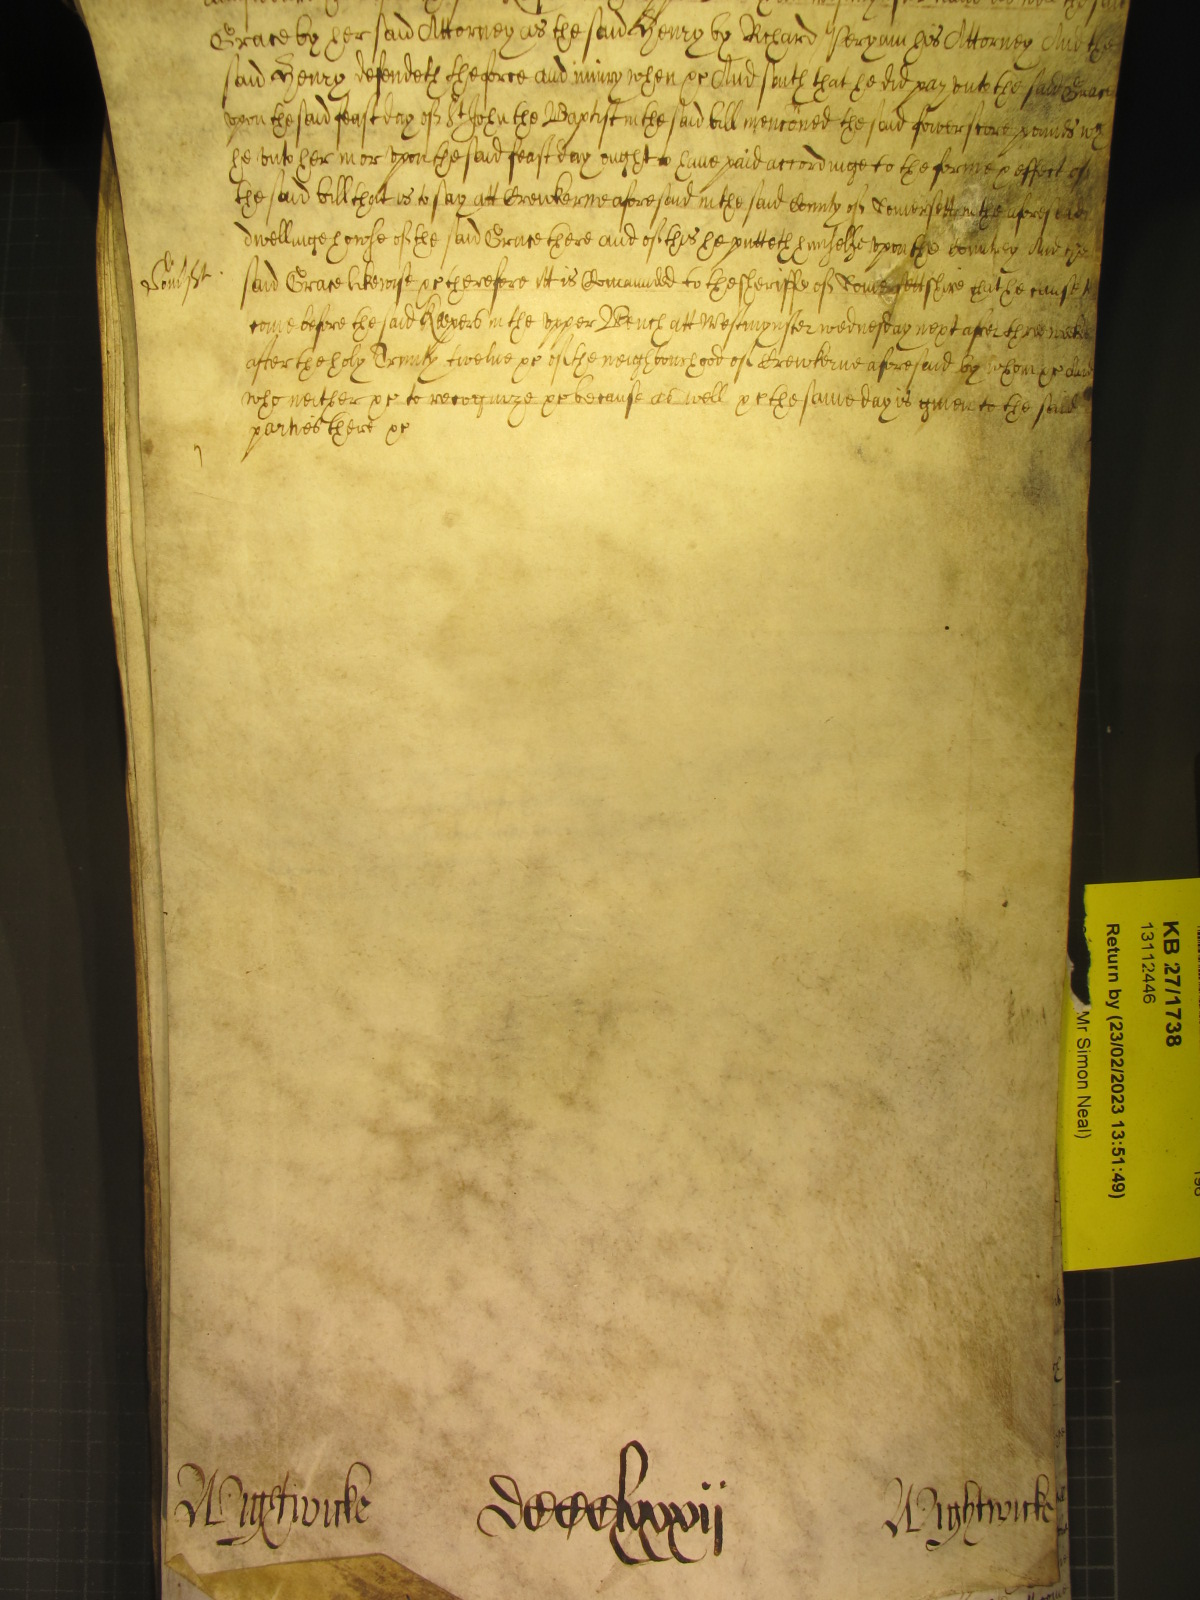 Grace by her said Attorney as the said Henry by Richard Seryam his Attorney And the
said Henry defendeth the force and iniury when &c And saith that he did pay vnto the said Grace
vpon the said feast day of St John the Baptist in the said bill mencõned the said fower score pounds wch
he vnto her in or vpon the said feast day ought to have paid accordinge to the forme & effect of
the said bill that is to say att Crewkerne aforesaid in the said County of Somersett in the aforesaid
dwellinge howse of the said Grace there and of this he putteth himselfe vpon the Countrey And the
Somst.
said Grace likewise &c therefore itt is Comaunded to the sheriffe of Somersettshire that he cause to
come before the said Keepers in the vpper Bench att Westmynster wednesday next after three weekes
after the holy Trinity twelve &c of the neighbourhood of Crewkerne aforesaid by whom &c And
who neither &c to recognize &c because as well &c the same day is given to the said
parties there &c
Wightwicke
dccclxxxij
Wightwicke
KB 27/1738
13112446
Return by (23/02/2023 13:51:49)
Mr Simon Neal)